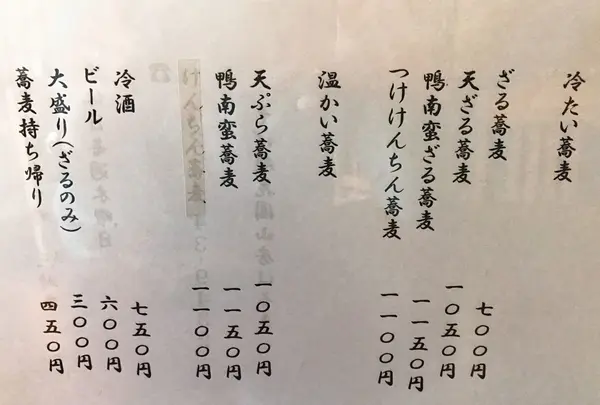 冷たい蕎麦
ざる蕎麦 七〇〇円
天ざる蕎麦 一〇五〇円
鴨南蛮ざる蕎麦 一一五〇円
つけけんちん蕎麦 一一〇〇円
温かい蕎麦
天ぷら蕎麦 一〇五〇円
鴨南蛮蕎麦 一一五〇円
けんちん蕎麦 一一〇〇円
冷酒 七五〇円
ビール 六〇〇円
大盛り(ざるのみ) 三〇〇円
蕎麦持ち帰り 四五〇円